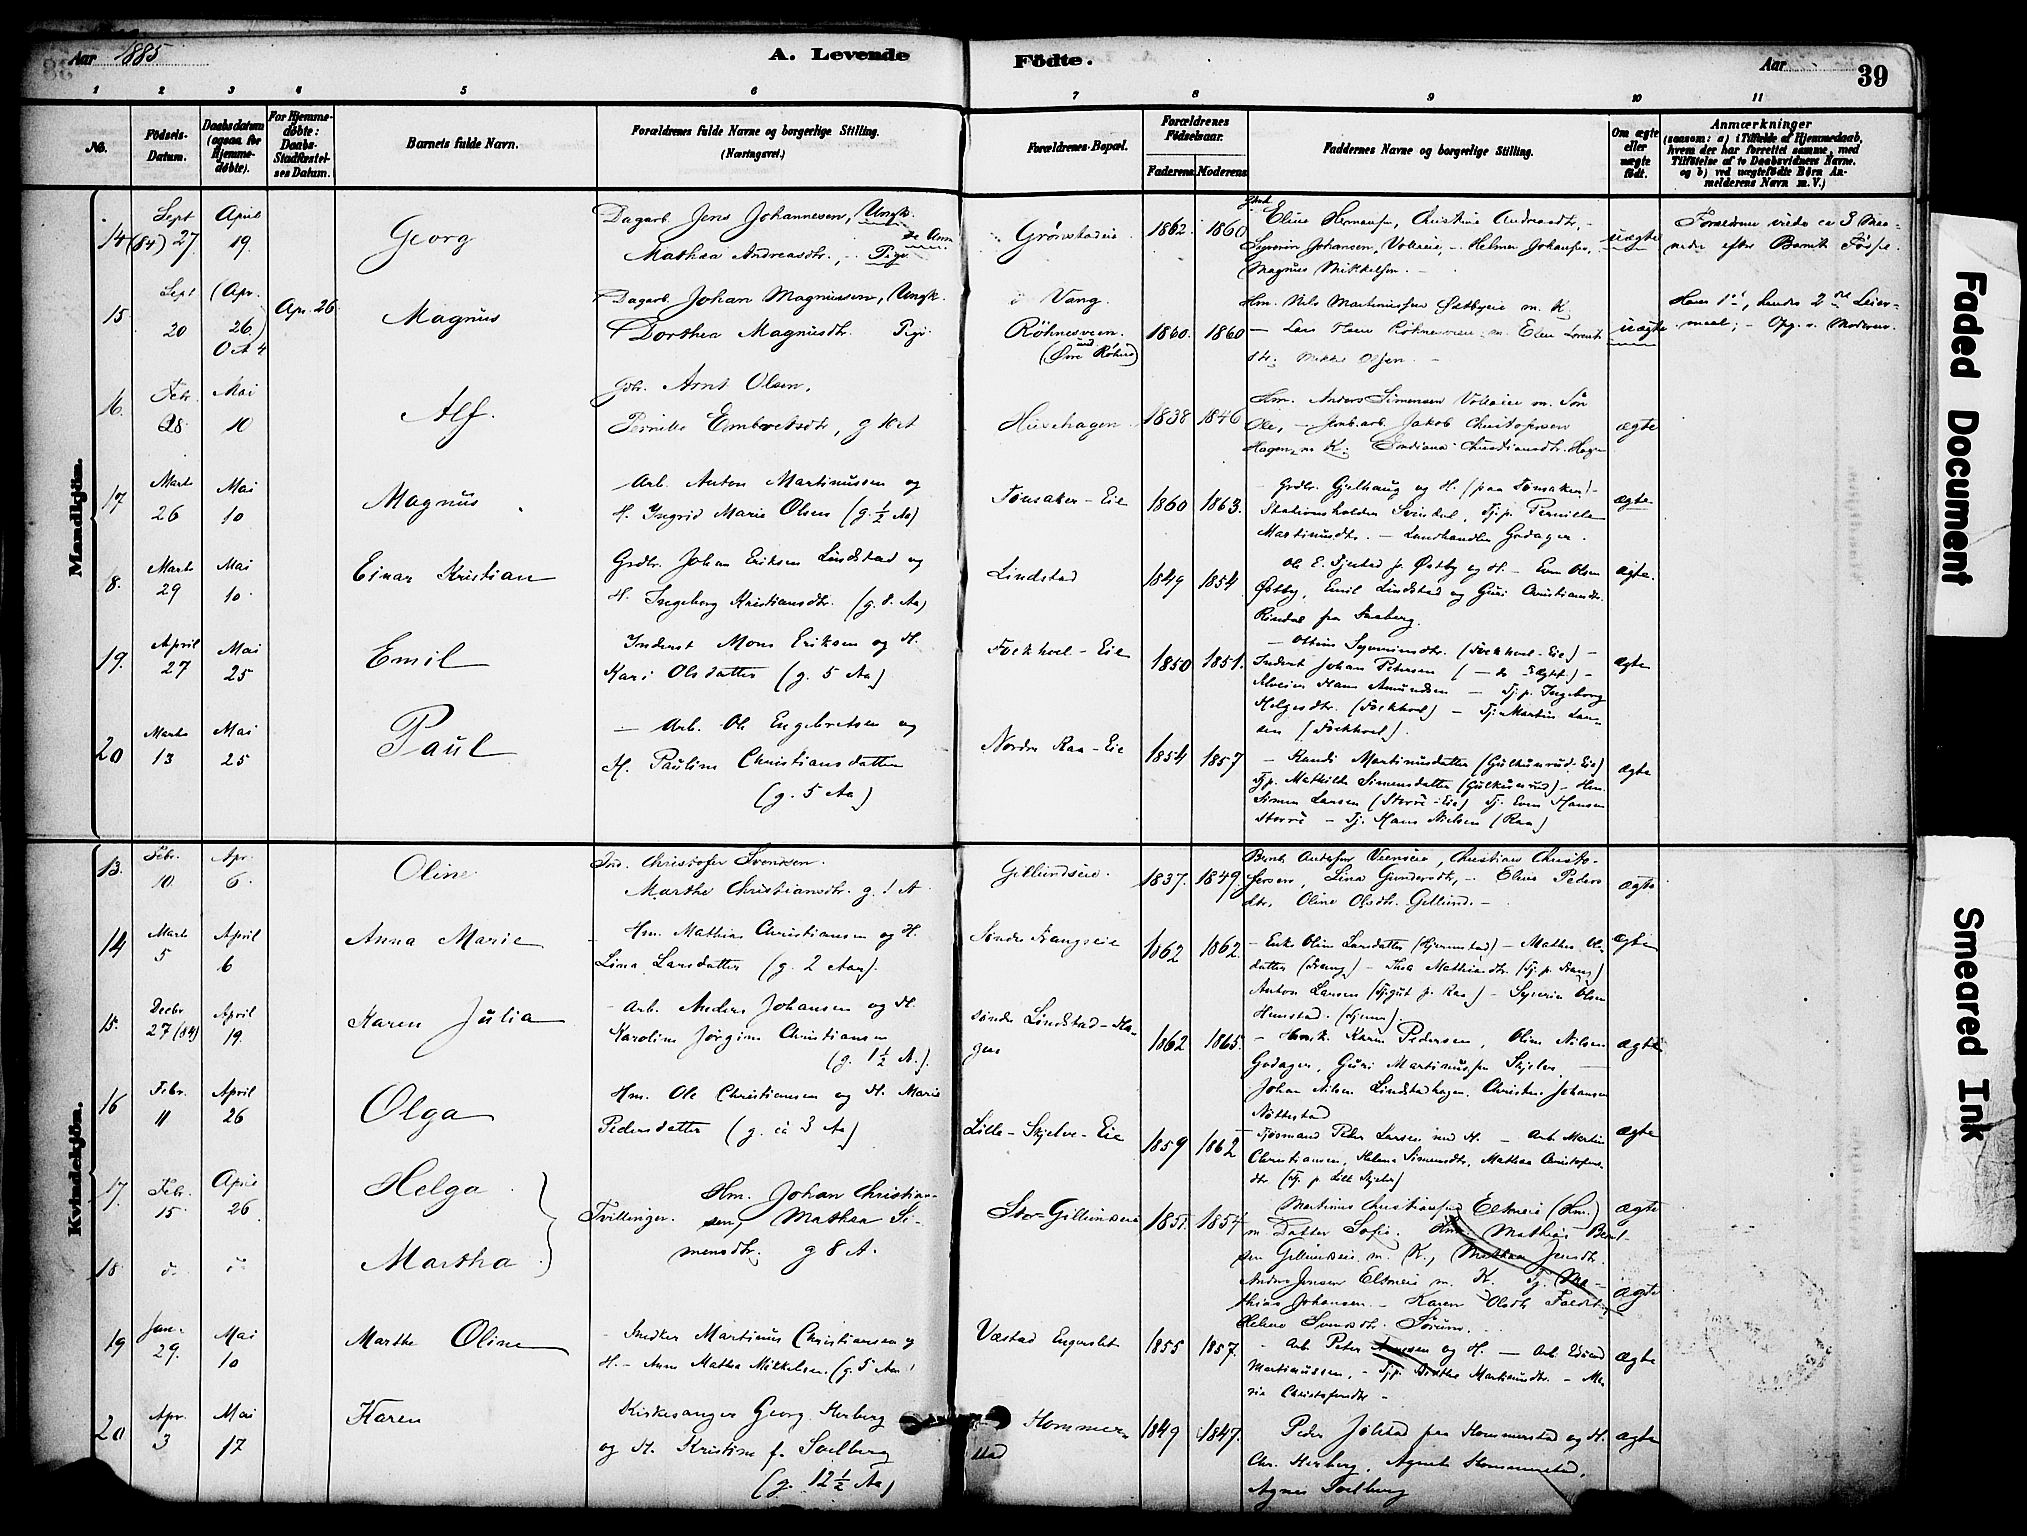 Aar 1885
A. Levende
Födte.
Aar
39
1 2 3 4 5 6 7 8 9 10 11
No.
Födsels-Datum.
Daabsdatum (ogsaa for Hjemmedöbte).
For Hjemmedöbte: Daabs-Stadfæstelses Datum.
Barnets fulde Navn.
Forældrenes fulde Navne og borgerlige Stilling. (Næringsvei.)
Forældrenes Bopæl.
Forældrenes Födselsaar.
Faderens Moderens
Faddernes Navne og borgerlige Stilling.
Om ægte eller uægte födt.
Anmærkninger
(saasom: a) i Tilfælde af Hjemmedaab, hvem der har forrettet samme, med Tilföielse af to Daabsvidners Navne. og b) ved uægtefödte Börn Anmelderens Navn m. V.)
Mandkjön.
14 Sept (84) 27 April 19. Georg
Dagarb. Jens Johannesen, Ungk.
Mathea Andreasdtr., Pige
Grönstadeie 1862. 1860
Eline Hermansen, Christine Andreasdtr,
Syverin Johansen, Volleie, - Helmer Johansen,
Magnus Mikkelsen.
uægte
Forældrene viede ca 3 Maaneder efter Barnets Födsel.
15 Sept 20 (Apr. 26) Oct 4 Apr. 26 Magnus
Dagarb. Johan Magnussen, Ungk.
Dorthea Magnusdtr. Pige
Vang.
Röhnesveen. (Övre Röhne) 1860. 1860
Hm. Nils Martinussen Östbyeie m. K.
uægte
Hans 1ste, hendes 2det Leiermaal; - Opg. v. Moderen
16. Febr. 28 Mai 10 Alf.
Arnt Olsen,
Pernille Embretsdtr, g 10 A
Hüsehagen 1838 1846
Hm. Anders Simensen Volleie m. Sön
Ole, - Jernb.arb. Jakob Christofersen
Hagen m K. Indiana Christiansdtr. Hagen
ægte
17 Marts 26 Mai 10 Magnus
Arb. Anton Martinussen og
H. Ingrid Marie Olsen (g. ½ Aa)
Tönsaker - Eie 1860 1863.
Grdbr. Gjelhaug og H. (paa Tönsaker) -
Stationsholder Svindal, Tj.p. Pernille
Martinusdtr. - Landhandler Godager.
ægte
18. Marts 29 Mai 10. Einar Kristian
Grdbr. Johan Eriksen Lindstad og
H. Ingeborg Kristiansdtr. (g. 8. Aa)
Lindstad 1849 1854
Ole E. Tjerstad fr. Östby og H. - Even Olsen
Östby, Emil Lindstad og Guri Christiansdtr.
Rindal fra Faaberg.
ægte.
19. April 27 Mai 25 Emil
Inderst Mons Eriksen og H.
Kari Olsdatter (g. 5 Aa)
Fockhoel - Eie 1850 1851.
- Ottine Syverinsdtr. (Fockhoel-Eie) -
Inderst Johan Petersen
Hans Amundsen - Tj.p. Ingeborg
Helgesdtr. (Fockhoel) - Tj. Martin Larsen (Fockhoel).
ægte
20 Marts 13 Mai 25 Paul
- Arb. Ole Engebretsen og
H. Pauline Christiansdatter
(g. 5 Aa)
Nordre Raa - Eie 1854 1857
- Randi Martinusdatter (Gulkusrud. Eie)
Tj.p. Mathilde Simensdatter (Gulkusrud) - Hm.
Simen Larsen (Storre-Eie) Tj. Even Hansen
Storre - Tj. Hans Nielsen (Raa)
ægte
Kvindekjön.
13. Febr. 10. Apr. 6. Oline
Ind. Christofer Svendsen.
Marthe Christiansdtr. g. 1 A.
Gillundseie. 1837. 1849
Bernt Andersen Veenseie, Christian Christofersen, Lina Gundersdtr, - Eline Pedersdtr. Oline Olsdtr. Gillund. -
ægte
14 Marts 5 April 6 Anna Marie
- Hm. Mathias Christiansen og H.
Lina Larsdatter (g. 2 Aar).
Söndre Frangseie 1862 1862.
- Enke Oline Larsdatter (Hjermstad) - Mathea Olsdatter (Frang) - Thea Mathiasdtr. (Tj. p. Frang)
Anton Larsen (Tj.gut p. Raa) - Syverin Olsen
Hemstad.
ægte
15. Decbr 27 (84) April 19. Karen Julia
- Arb. Anders Johansen og H.
Karoline Jörgine Christiansen
(g. 1½ A.)
söndre Lindstad-Hagen 1862 1865.
- Karen Pedersen, Oline Nilsen
Godager, Guri Martinussen Skjelve -
Johan Nilsen Lindstadhagen. Christine Johansen
Nöttestad
ægte
16 Febr. 11 April 26 Olga
Hm. Ole Christiansen og H. Marie
Pedersdatter (g. ca 3 Aa)
Lille - Skjelve - Eie 1859 1862
Tjösmand Peder Larsen med H. - Arb. Martin
Christiansen, Helene Simensdtr, Mathea Christofersdtr (Tj. p. Lille Skjelve)
ægte
17. Febr. 15. April 26 Helga
18. d. d. Martha
Tvillinger.
Hm. Johan Christiansen, Mathea Simensdtr. g 8 A.
Sto-Gillundseie 1851. 1854.
Martinus Christiansen Eltneie (Hm.)
m. Datter Sofie. Hm. Mathias Berntsen Gillundseie m. K., Mathea Jensdtr.
Anders Jensen Elsneie m. K. Tj. Mathias Johansen. - Karen Olsdtr
Helene Svendsdtr. Sörum.
ægte
ægte
19 Jan. 29. Mai 10 Marthe Oline
- Snedker Martinus Christiansen og
H. - Anne Mathea Mikkelsen. (g. 5 Aa)
Væstad Engerslet 1855 1857.
- Arb. Peter og H. - Arb. Edvard
Martinussen, - Tj.p. Dorthea Martinusdtr. - Marie Christofersdtr -
ægte
20 Apr. 3 Mai 17 Karen
Kirkesanger Georg Herberg
og H. Kristine f. Soelberg
(g. 12½ Aa)
Hommerstad 1849 1847.
Peder Jölstad paa Hommerstad og H.
Chr. Herberg, Agnete Hommerstad,
Agnes Soelberg
ægte
Faded Document
Smeared Ink